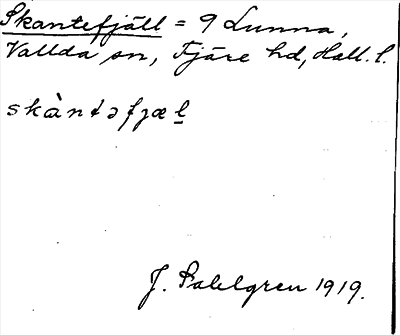 Skantefjäll = 9 Lunna,
Vallda sn, Fjäre hd, Hall. l.
skàntəfjæl
J. Sahlgren 1919.